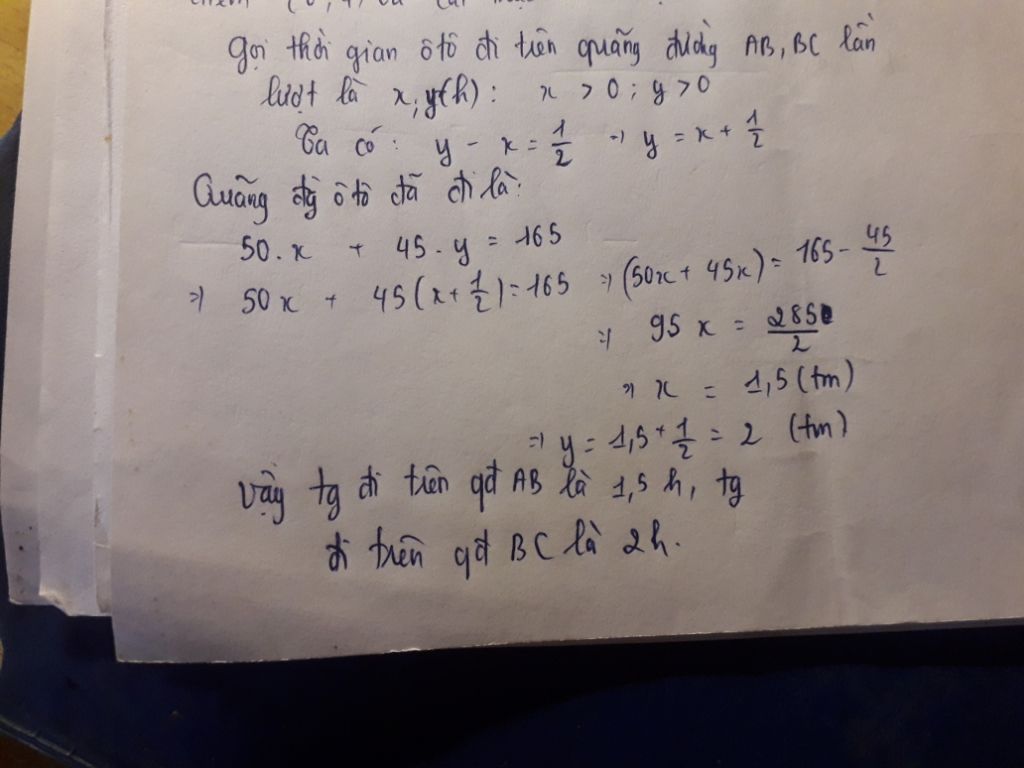 gọi thời gian ôtô đi trên quãng đường AB, BC lần
lượt là x, y(h) : x > 0 ; y > 0
Ta có: y - x = 1/2 => y = x + 1/2
Quãng đg ôtô đã đi là:
50.x + 45.y = 165
=> 50x + 45(x + 1/2) = 165 => (50x + 45x) = 165 - 45/2
=> 95x = 285/2
=> x = 1,5 (tm)
=> y = 1,5 + 1/2 = 2 (tm)
Vậy tg đi trên qđ AB là 1,5 h, tg
đi trên qđ BC là 2h.